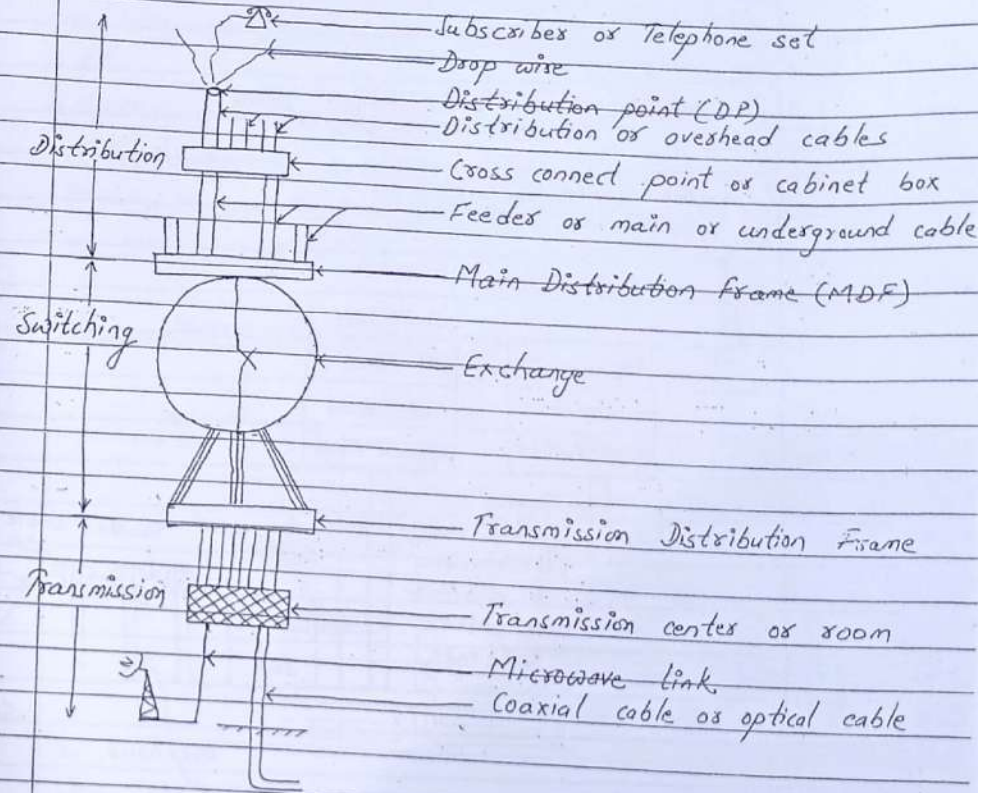 Subscriber or Telephone set
Drop wire
Distribution point (DP)
Distribution or overhead cables
Distribution
Cross connect point or cabinet box
Feeder or main or underground cable
Main Distribution Frame (MDF)
Switching
Exchange
Transmission Distribution Frame
Transmission
Transmission center or room
Microwave link
Coaxial cable or optical cable